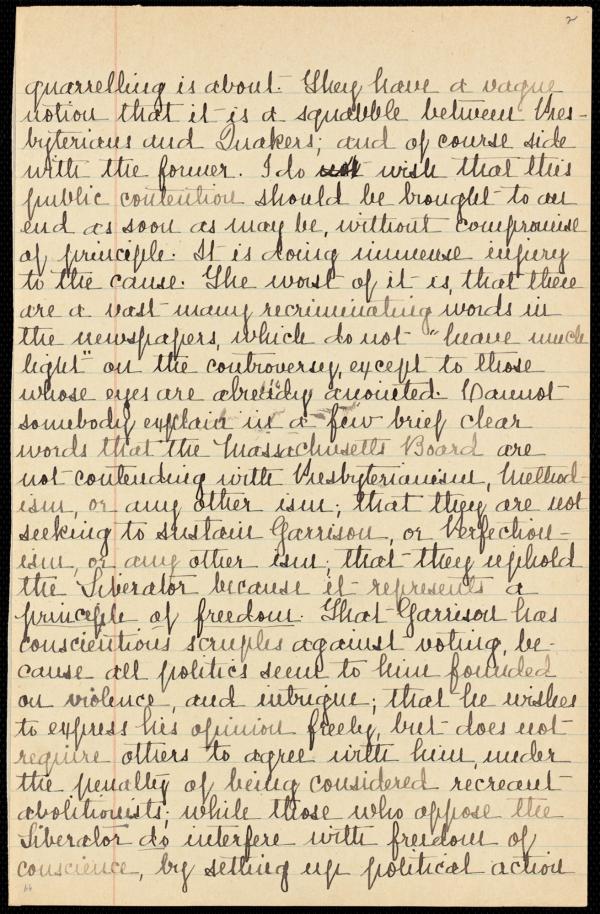 2
quarrelling is about. They have a vague
notion that it is a squabble between Pres-
byterians and Quakers; and of course side
with the former. I do not wish that this
public contention should be brought to an
end as soon as may be, without compromise
of principle. It is doing immense injury
to the cause. The worst of it is, that there
are a vast many recriminating words in
the newspapers, which do not "heave much
light" on the controversy, except to those
whose eyes are already anointed. Cannot
somebody explain in a few brief clear
words that the Massachusetts Board are
not contending with Presbyterianism, Method-
ism, or any other ism; that they are not
seeking to sustain Garrison, or Perfection-
ism, or any other ism; that they uphold
the Liberator because it represents a
principle of freedom. That Garrison has
conscientious scruples against voting, be-
cause all politics seem to him founded
on violence, and intrigue; that he wishes
to express his opinion freely, but does not
require others to agree with him, under
the penalty of being considered recreant
abolitionists; while those who oppose the
Liberator do interfere with freedom of
conscience, by setting up political action